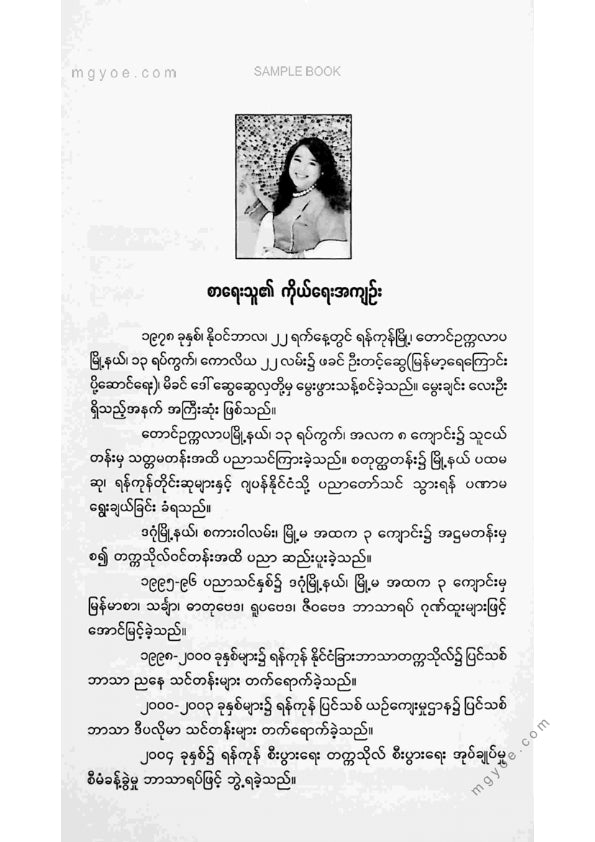 mgyoe.com
SAMPLE BOOK
စာရေးသူ၏ ကိုယ်ရေးအကျဉ်း
၁၉၇၈ ခုနှစ်၊ နိုဝင်ဘာလ၊ ၂၂ ရက်နေ့တွင် ရန်ကုန်မြို့၊ တောင်ဥက္ကလာပ
မြို့နယ်၊ ၁၃ ရပ်ကွက်၊ ကောလိယ ၂၂ လမ်း၌ ဖခင် ဦးတင့်ဆွေ(မြန်မာ့ရေကြောင်း
ပို့ဆောင်ရေး)၊ မိခင် ဒေါ်ဆွေဆွေလှတို့မှ မွေးဖွားသန့်စင်ခဲ့သည်။ မွေးချင်း လေးဦး
ရှိသည့်အနက် အကြီးဆုံး ဖြစ်သည်။
တောင်ဥက္ကလာပမြို့နယ်၊ ၁၃ ရပ်ကွက်၊ အလက ၈ ကျောင်း၌ သူငယ်
တန်းမှ သတ္တမတန်းအထိ ပညာသင်ကြားခဲ့သည်။ စတုတ္ထတန်း၌ မြို့နယ် ပထမ
ဆု၊ ရန်ကုန်တိုင်းဆုများနှင့် ဂျပန်နိုင်ငံသို့ ပညာတော်သင် သွားရန် ပဏာမ
ရွေးချယ်ခြင်း ခံရသည်။
ဒဂုံမြို့နယ်၊ စကားဝါလမ်း၊ မြို့မ အထက ၃ ကျောင်း၌ အဋ္ဌမတန်းမှ
စ၍ တက္ကသိုလ်ဝင်တန်းအထိ ပညာ ဆည်းပူးခဲ့သည်။
၁၉၉၅-၉၆ ပညာသင်နှစ်၌ ဒဂုံမြို့နယ်၊ မြို့မ အထက ၃ ကျောင်းမှ
မြန်မာစာ၊ သင်္ချာ၊ ဓာတုဗေဒ၊ ရူပဗေဒ၊ ဇီဝဗေဒ ဘာသာရပ် ဂုဏ်ထူးများဖြင့်
အောင်မြင့်ခဲ့သည်။
၁၉၉၈-၂၀၀၀ ခုနှစ်များ၌ ရန်ကုန် နိုင်ငံခြားဘာသာတက္ကသိုလ်၌ ပြင်သစ်
ဘာသာ ညနေ သင်တန်းများ တက်ရောက်ခဲ့သည်။
၂၀၀၀-၂၀၀၃ ခုနှစ်များ၌ ရန်ကုန် ပြင်သစ် ယဉ်ကျေးမှုဌာန၌ ပြင်သစ်
ဘာသာ ဒီပလိုမာ သင်တန်းများ တက်ရောက်ခဲ့သည်။
၂၀၀၄ ခုနှစ်၌ ရန်ကုန် စီးပွားရေး တက္ကသိုလ် စီးပွားရေး အုပ်ချုပ်မှု
စီမံခန့်ခွဲမှု ဘာသာရပ်ဖြင့် ဘွဲ့ရခဲ့သည်။
mgyoe.com